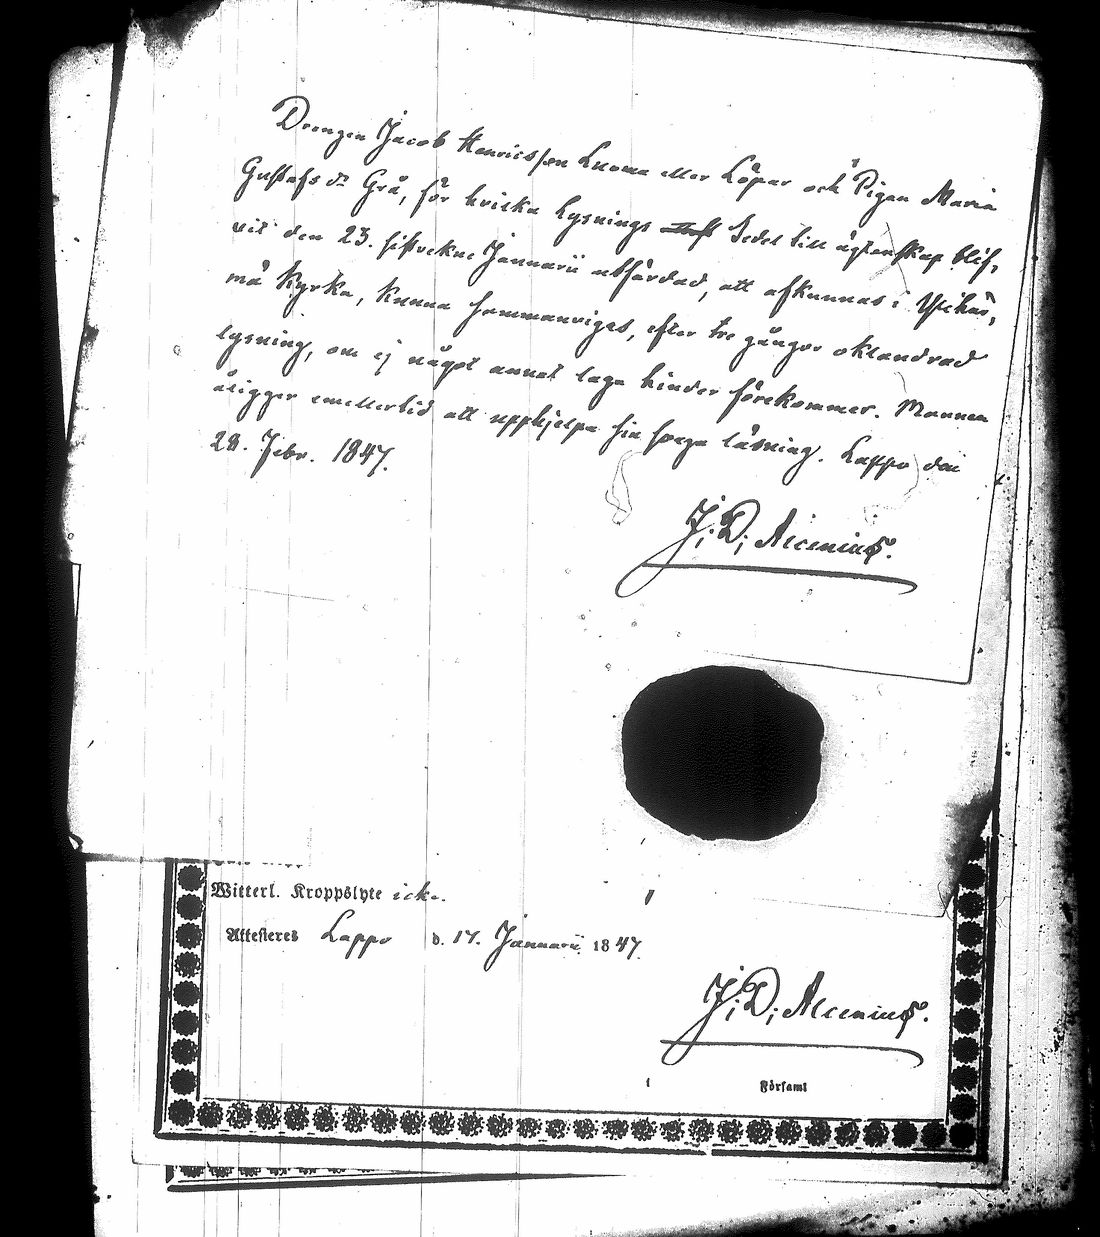 Drengen Jacob Henricsson Luoma eller Löpar och Pigan Maria
Gustafs dr Grå, för hvilka Lysnings Sedel till ägtenskap blif,
vit den 23. sistvekne Januarii utfärdad, att afkunnas i Ylihär,
mä Kyrka, kunna sammanvigas, efter tre gångor oklandrad
lysning, om ej något annat laga hinder förekommer. Mannen
åligger emellertid att upphjelpa sin svaga läsning. Lappo den
28. Febr. 1847.
J. D. Alcenius.
Witterl. Kroppslyte icke.
Attesteres Lappo d. 17. Januarii 1847.
J. D. Alcenius.
Församl